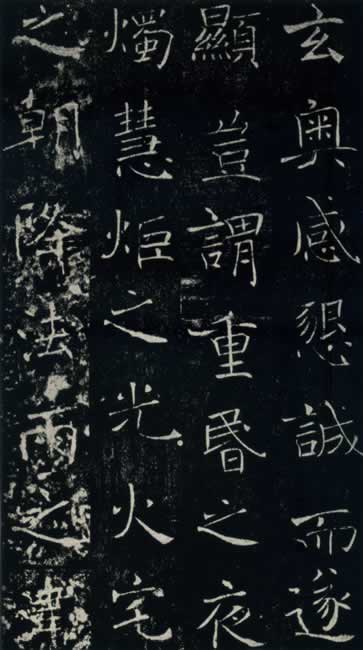 玄奧感懇誠而遂
顯豈謂重昬之夜
燭慧炬之光火宅
之朝降法雨之津